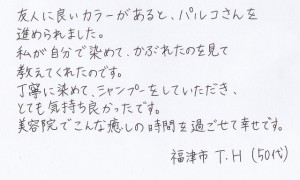 友人に良いカラーがあると、パルコさんを
進められました。
私が自分で染めて、かぶれたのを見て
教えてくれたのです。
丁寧に染めて、シャンプーをしていただき、
とても気持ち良かったです。
美容院でこんな癒しの時間を過ごせて幸せです。
福津市 T.H (50代)